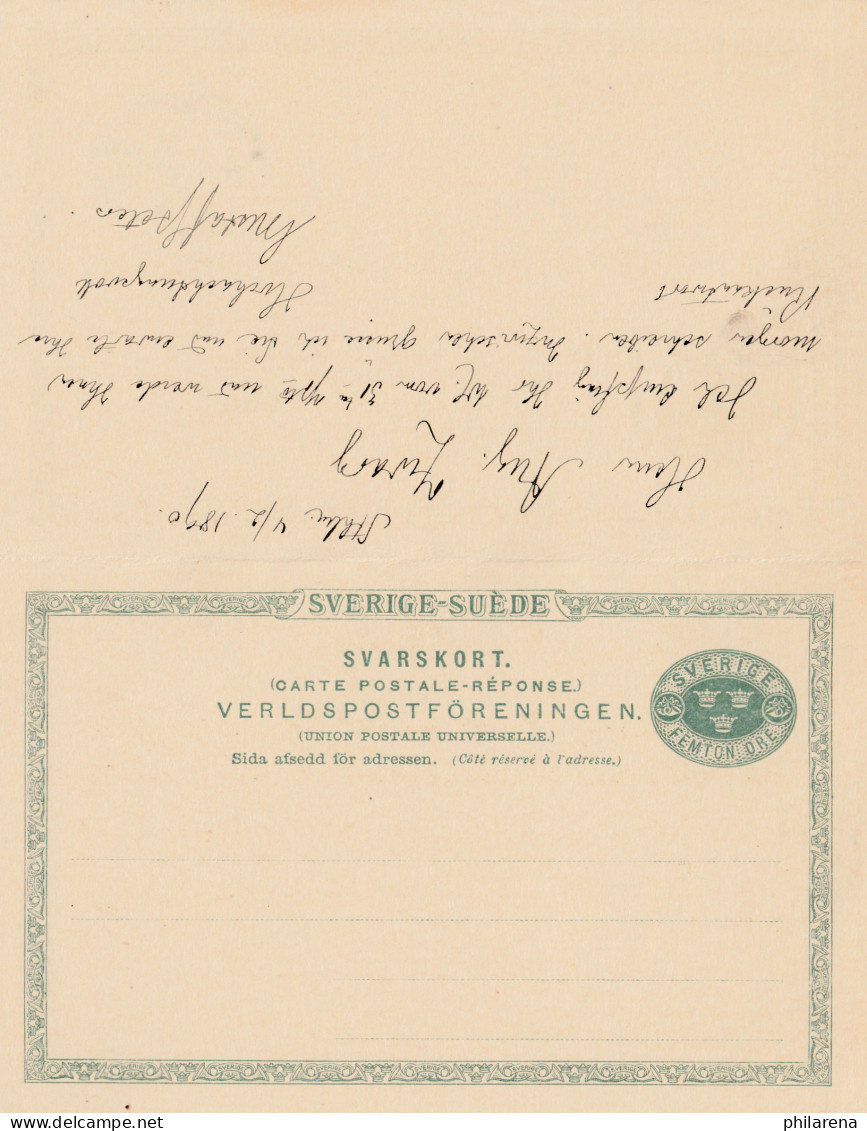 Sthlm. 4/2. 1890.
Herrn Aug.
Ich empfing Ihr W. vom 31ten und werde Ihnen
morgen schreiben. Inzwischen grüsse ich Sie und erwarte Ihre
Rückantwort
Hochachtungsvoll
SVERIGE-SUÈDE
SVARSKORT.
(CARTE POSTALE-RÉPONSE.)
VERLDSPOSTFÖRENINGEN.
(UNION POSTALE UNIVERSELLE.)
Sida afsedd för adressen. (Côté réservé à l'adresse.)
SVERIGE
FEMTON ÖRE
philarena